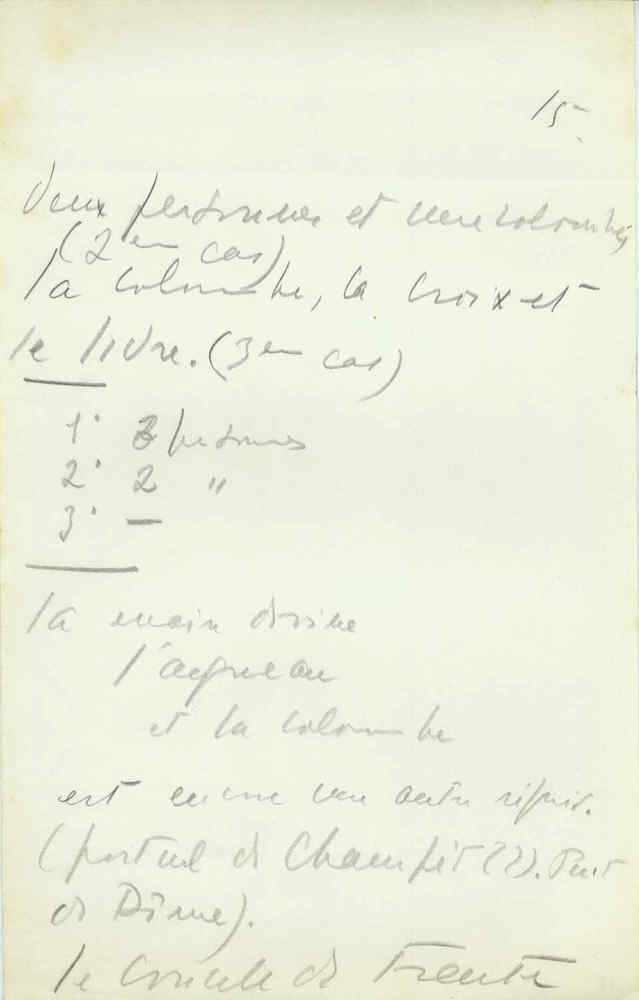 15
deux personnes et une colombe
(2em cas)
la colombe, la croix et
le livre. (3em cas)
1° 3 personnes
2° 2 "
3° —
la main divine
l'agneau
et la colombe
est encore une autre
(portail de Champét (??). Puit
de Dôme).
le Concile de Trente